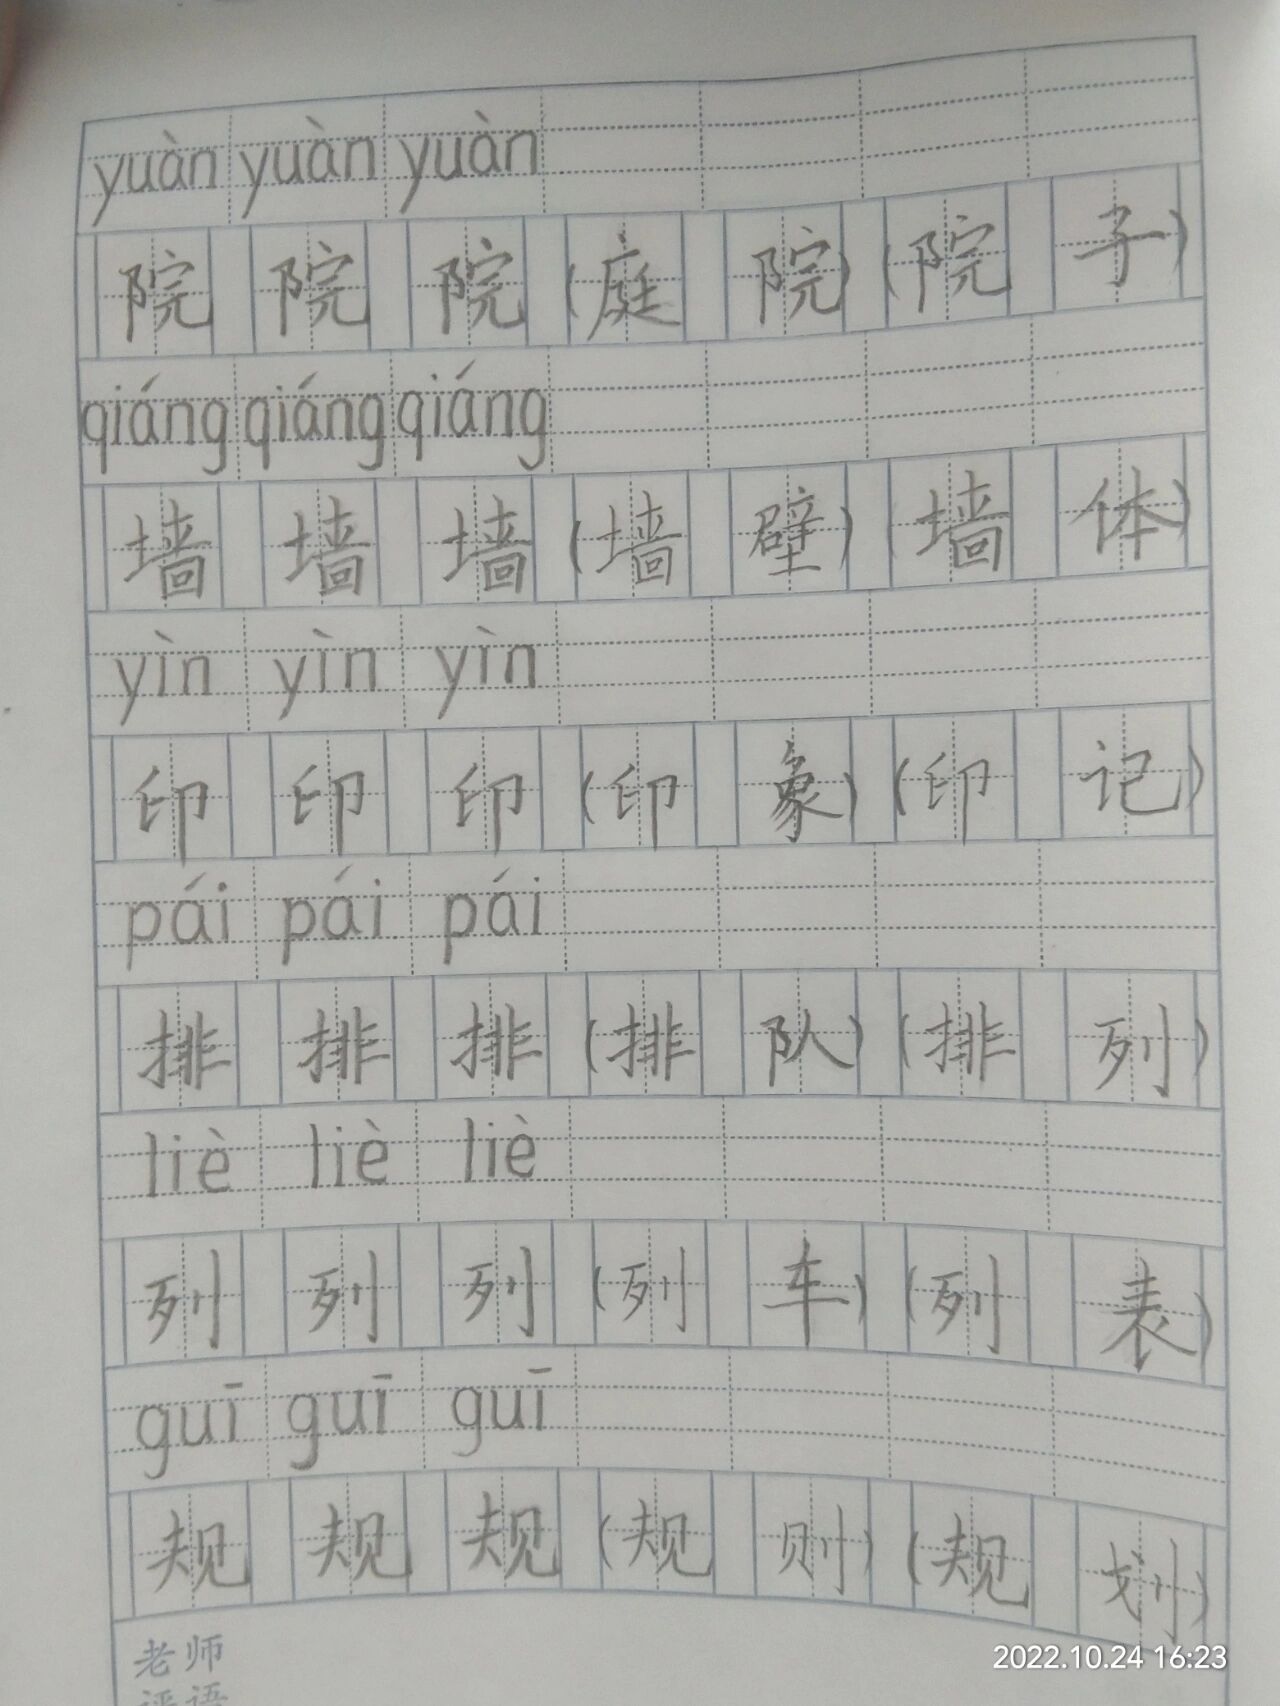 yuàn yuàn yuàn
院 院 院 (庭 院) (院 子)
qiáng qiáng qiáng
墙 墙 墙 (墙 壁) (墙 体)
yìn yìn yìn
印 印 印 (印 象) (印 记)
pái pái pái
排 排 排 (排 队) (排 列)
liè liè liè
列 列 列 (列 车) (列 表)
guī guī guī
规 规 规 (规 则) (规 划)
老师
评语
2022.10.24 16:23